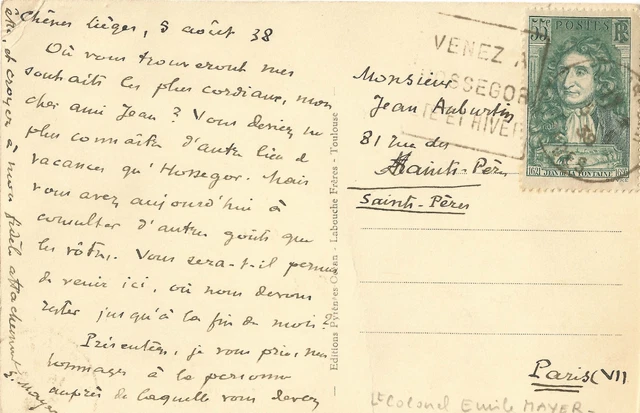 Chênes lièges, 5 août 38
Où vous trouveront mes
souhaits les plus cordiaux, mon
cher ami Jean ? Vous devriez ne
plus connaître d'autre lieu de
vacances qu'Hossegor. Mais
vous avez aujourd'hui à
consulter d'autres goûts que
les vôtres. Vous sera-t-il permis
de venir ici, où nous devons
rester jusqu'à la fin du mois ?
Présentez, je vous prie, mes
hommages à la personne
auprès de laquelle vous devez
être, et croyez à mon fidèle attachement
E. Mayer
Editions Pyrénées Océan - Labouche Frères - Toulouse
VENEZ A
HOSSEGOR
ETE ET HIVER
55c POSTES RF
1621 JEAN DE LA FONTAINE
Monsieur
Jean Auburtin
81 rue des
Saints-Pères
Saints-Pères
Paris (VII
Lt Colonel Emile MAYER